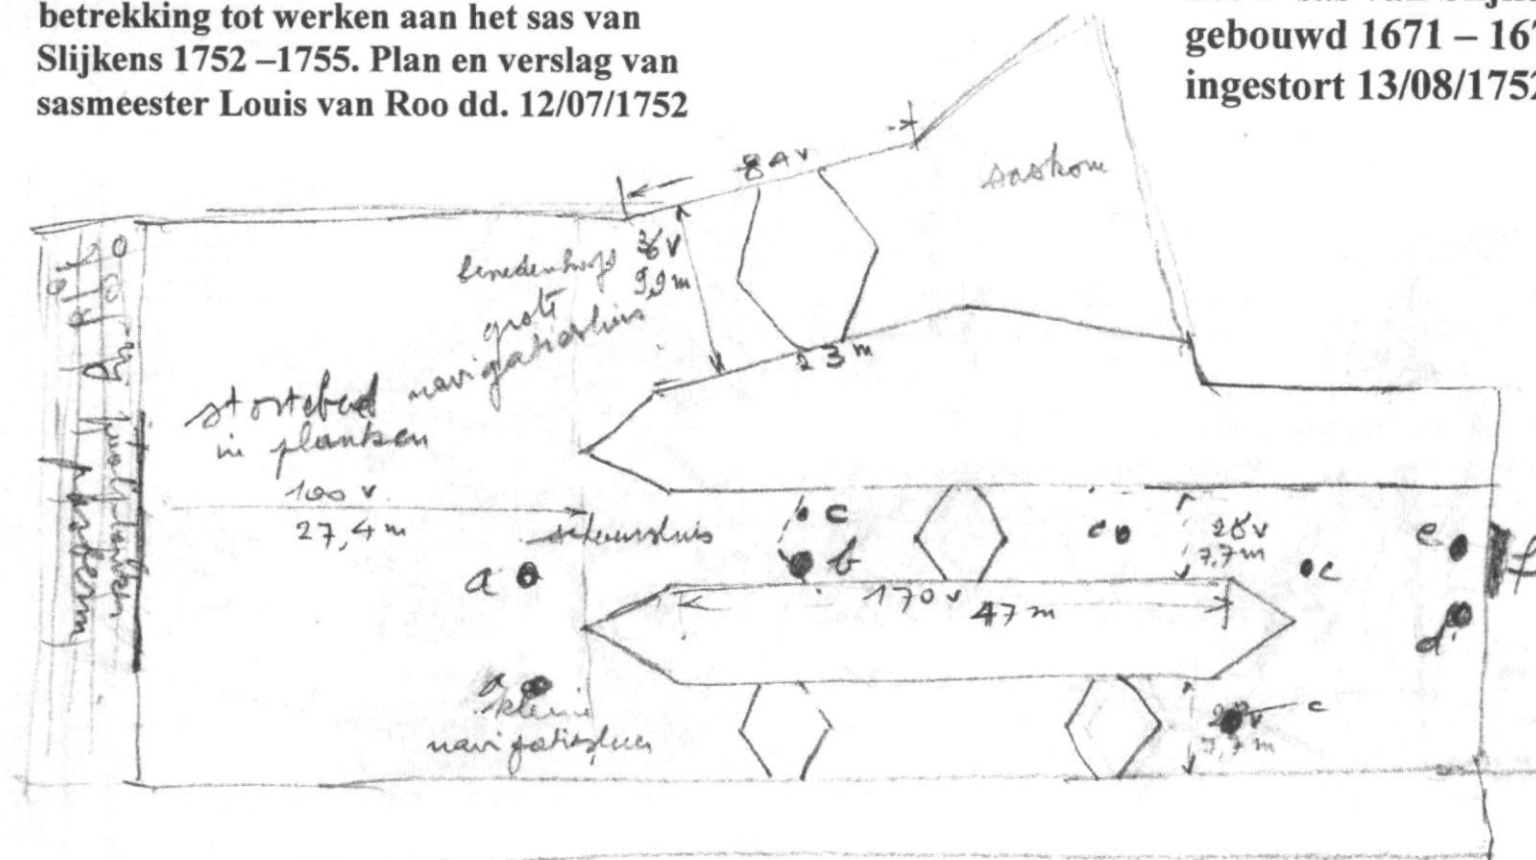 betrekking tot werken aan het sas van
Slijkens 1752 –1755. Plan en verslag van
sasmeester Louis van Roo dd. 12/07/1752
gebouwd 1671 – 167
ingestort 13/08/1752
84 v
saskom
benedenhoofd
grote
navigatiesluis
36 v
9,9 m
23 m
stortebed
in planken
100 v
27,4 m
schuursluis
a
c
b
c
28 v
7,7 m
c
e
f
d
170 v
47 m
a
kleine
navigatiesluis
28 v
7,7 m
c